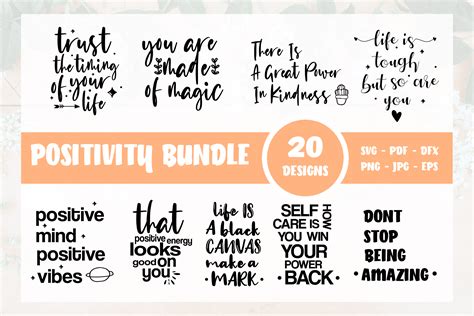 trust
the timing
of your
life
you are
made
of magic
There Is
A Great Power
In Kindness
life is
tough
but so are
you
POSITIVITY BUNDLE
20
DESIGNS
SVG - PDF - DFX
PNG - JPG - EPS
positive
mind
positive
vibes
that
positive energy
looks
good on
you
life IS
A black
CANVAS
make a
MARK
SELF
CARE IS
HOW
YOU WIN
YOUR
POWER
BACK
DONT
STOP
BEING
AMAZING